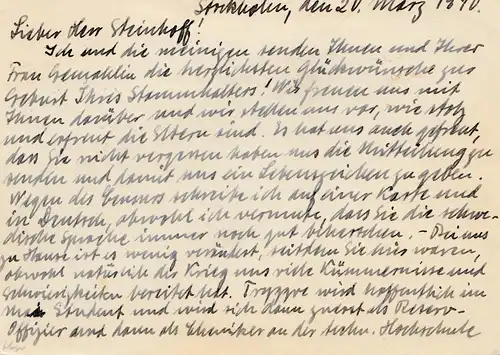 Stockholm, den 20. März 1940.
Lieber Herr Steinhoff!
Ich und die meinigen senden Ihnen und Ihrer
Frau Gemahlin die herzlichsten Glückwünsche zur
Geburt Ihres Stammhalters! Wir freuen uns mit
Ihnen darüber und wir stellen uns vor, wie stolz
und erfreut die Eltern sind. Es hat uns auch gefreut,
dass Sie nicht vergessen haben uns die Mitteilung zu
senden und damit uns ein Lebenszeichen zu geben.
Wegen des Censors schreibe ich auf einer Karte und
in Deutsch, obwohl ich vermute, dass Sie die schwe-
dische Sprache immer noch gut beherrschen. – Bei uns
zu Hause ist es wenig verändert, seitdem Sie hier waren,
obwohl natürlich der Krieg uns viele Kümmernisse und
Schwierigkeiten bereitet hat. Tryggve wird hoffentlich im
Mai Student und wird sich dann zuerst als Reserv-
Offizier und dann als Chemiker an der techn. Hochschule